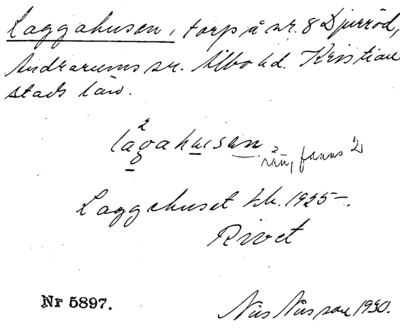 Laggahusen, torp å nr. 8 Djurröd,
Andrarums sn. Albo hd. Kristian
stads län.
lagahusen
2 rum, fanns 2
Laggehuset kb. 1925-.
Rivet
Nr 5897.
Nils Nilsson 1930.